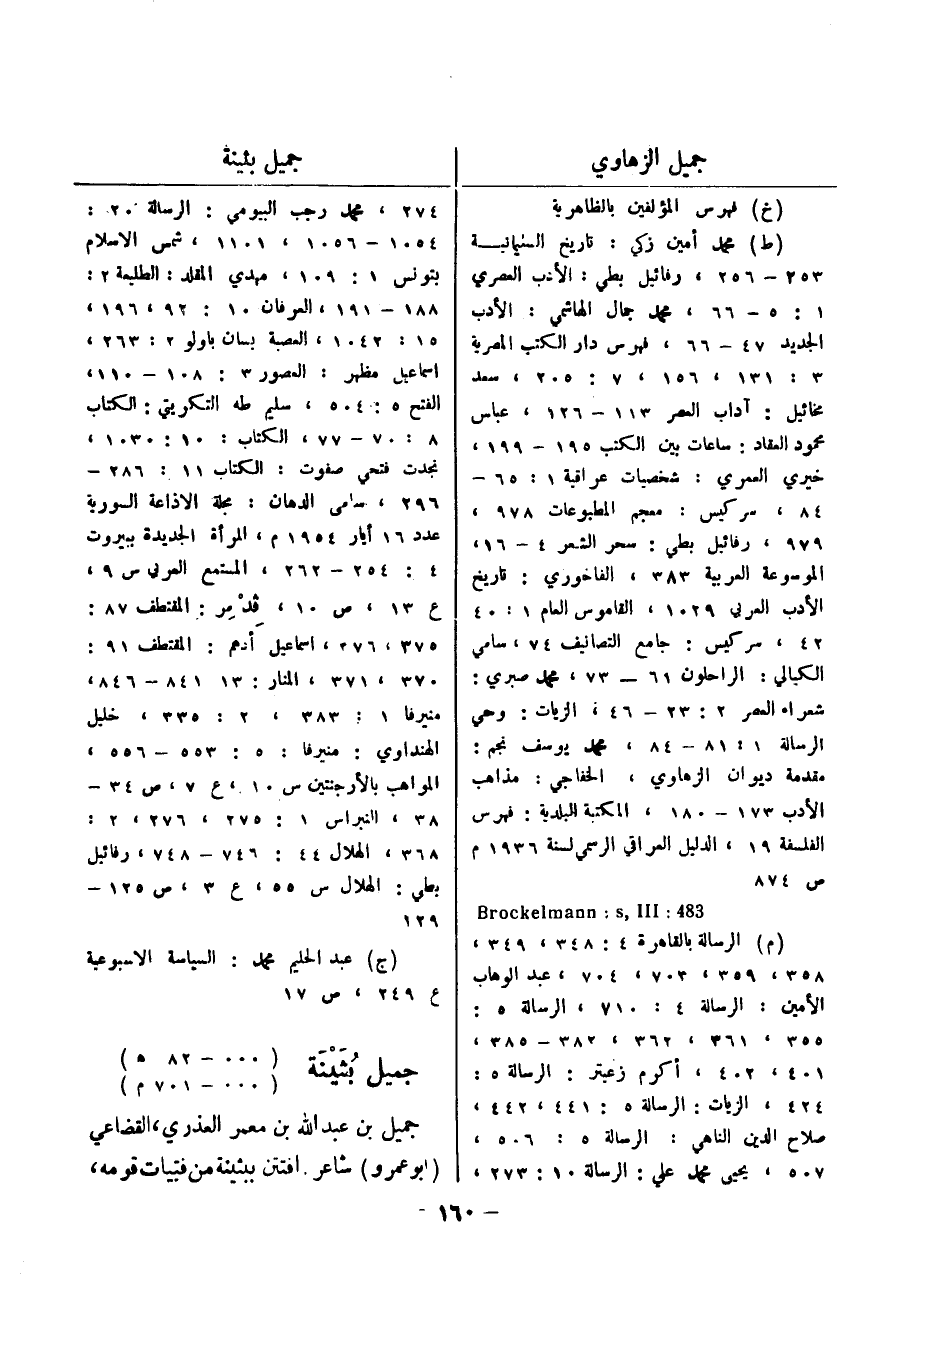 جميل الزهاوي
(خ) فهرس المؤلفين بالظاهرية
(ط) محمد أمين زكي : تاريخ السليمانيـة
٢٥٣ – ٢٥٦ ، رفائيل بطي : الأدب العصري
١ : ٥ – ٦٦ ، محمد جمال الهاشمي : الأدب
الجديد ٤٧ – ٦٦ ، فهرس دار الكتب المصرية
٣ : ١٣١ ، ١٥٦ ، ٧ : ٢٠٥ ، سعد
مخائيل : آداب العصر ١١٣ – ١٢٦ ، عباس
محمود العقاد : ساعات بين الكتب ١٩٥ – ١٩٩ ،
خيري العمري : شخصيات عراقية ١ : ٦٥ –
٨٤ ، سركيس : معجم المطبوعات ٩٧٨ ،
٩٧٩ ، رفائيل بطي : سحر الشعر ٤ – ١٦ ،
الموسوعة العربية ٣٨٣ ، الفاخوري : تاريخ
الأدب العربي ١٠٢٩ ، القاموس العام ١ : ٤٠
٤٢ ، سركيس : جامع التصانيف ٧٤ ، سامي
الكيالي : الراحلون ٦١ – ٧٣ ، محمد صبري :
شعراء العصر ٢ : ٢٣ – ٤٦ ، الزيات : وحي
الرسالة ١ : ٨١ – ٨٤ ، محمد يوسف نجم :
مقدمة ديوان الزهاوي ، الخفاجي : مذاهب
الأدب ١٧٣ – ١٨٠ ، المكتبة البلدية : فهرس
الفلسفة ١٩ ، الدليل العراقي الرسمي لسنة ١٩٣٦ م
ص ٨٧٤
Brockelmann : s, III : 483
(م) الرسالة بالقاهرة ٤ : ٣٤٨ ، ٣٤٩ ،
٣٥٨ ، ٣٥٩ ، ٧٠٣ ، ٧٠٤ ، عبد الوهاب
الأمين : الرسالة ٤ : ٧١٠ ، الرسالة ٥ :
٣٥٥ ، ٣٦١ ، ٣٦٢ ، ٣٨٢ – ٣٨٥ ،
٤٠١ ، ٤٠٢ ، أكرم زعيتر : الرسالة ٥ :
٤٢٤ ، الزيات : الرسالة ٥ : ٤٤١ ، ٤٤٢ ،
صلاح الدين الناهي : الرسالة ٥ : ٥٠٦ ،
٥٠٧ ، يحيى محمد علي : الرسالة ١٠ : ٢٧٣ ،
جميل بثينة
٢٧٤ ، محمد رجب البيومي : الرسالة ٢٠ :
١٠٥٤ – ١٠٥٦ ، ١١٠١ ، شمس الاسلام
بتونس ١ : ١٠٩ ، مهدي المقلد : الطليعة ٢ :
١٨٨ – ١٩١ ، العرفان ١٠ : ٩٢ ، ١٩٦ ،
١٥ : ١٠٤٢ ، العصبة بسان باولو ٢ : ٢٦٣ ،
اسماعيل مظهر : العصور ٣ : ١٠٨ – ١١٠ ،
الفتح ٥ : ٥٠٤ ، سليم طه التكريتي : الكتاب
٨ : ٧٠ – ٧٧ ، الكتاب : ١٠ : ١٠٣٠ ،
نجدت فتحي صفوت : الكتاب ١١ : ٢٨٦ –
٢٩٦ ، سامي الدهان : مجلة الاذاعة السورية
عدد ١٦ أيار ١٩٥٤ م ، المرأة الجديدة ببيروت
٤ : ٢٥٤ – ٢٦٢ ، المستمع العربي س ٩ ،
ع ١٣ ، ص ١٠ ، فِدْمِر : المقتطف ٨٧ :
٣٧٥ ، ٢٧٦ ، اسماعيل أدهم : المقتطف ٩١ :
٣٧٠ ، ٣٧١ ، المنار : ١٣ ٨٤١ – ٨٤٦ ،
منيرفا ١ : ٣٨٣ ، ٢ : ٣٣٥ ، خليل
الهنداوي : منيرفا : ٥ : ٥٥٣ – ٥٥٦ ،
المواهب بالأرجنتين س ١٠ ، ع ٧ ، ص ٣٤ –
٣٨ ، النبراس ١ : ٢٧٥ ، ٢٧٦ ، ٢ :
٣٦٨ ، الهلال ٤٤ : ٧٤٦ – ٧٤٨ ، رفائيل
بطي : الهلال س ٥٥ ، ع ٣ ، ص ١٢٥ –
١٢٩
(ج) عبد الحليم محمد : السياسة الاسبوعية
ع ٢٤٩ ، ص ١٧
جميل بُثَيْنَة ( ٠٠٠ – ٨٢ ه )
( ٠٠٠ – ٧٠١ م )
جميل بن عبد الله بن معمر العذري ، القضاعي
(ابو عمرو) شاعر . افتتن ببثينة من فتيات قومه ،
– ١٦٠ -